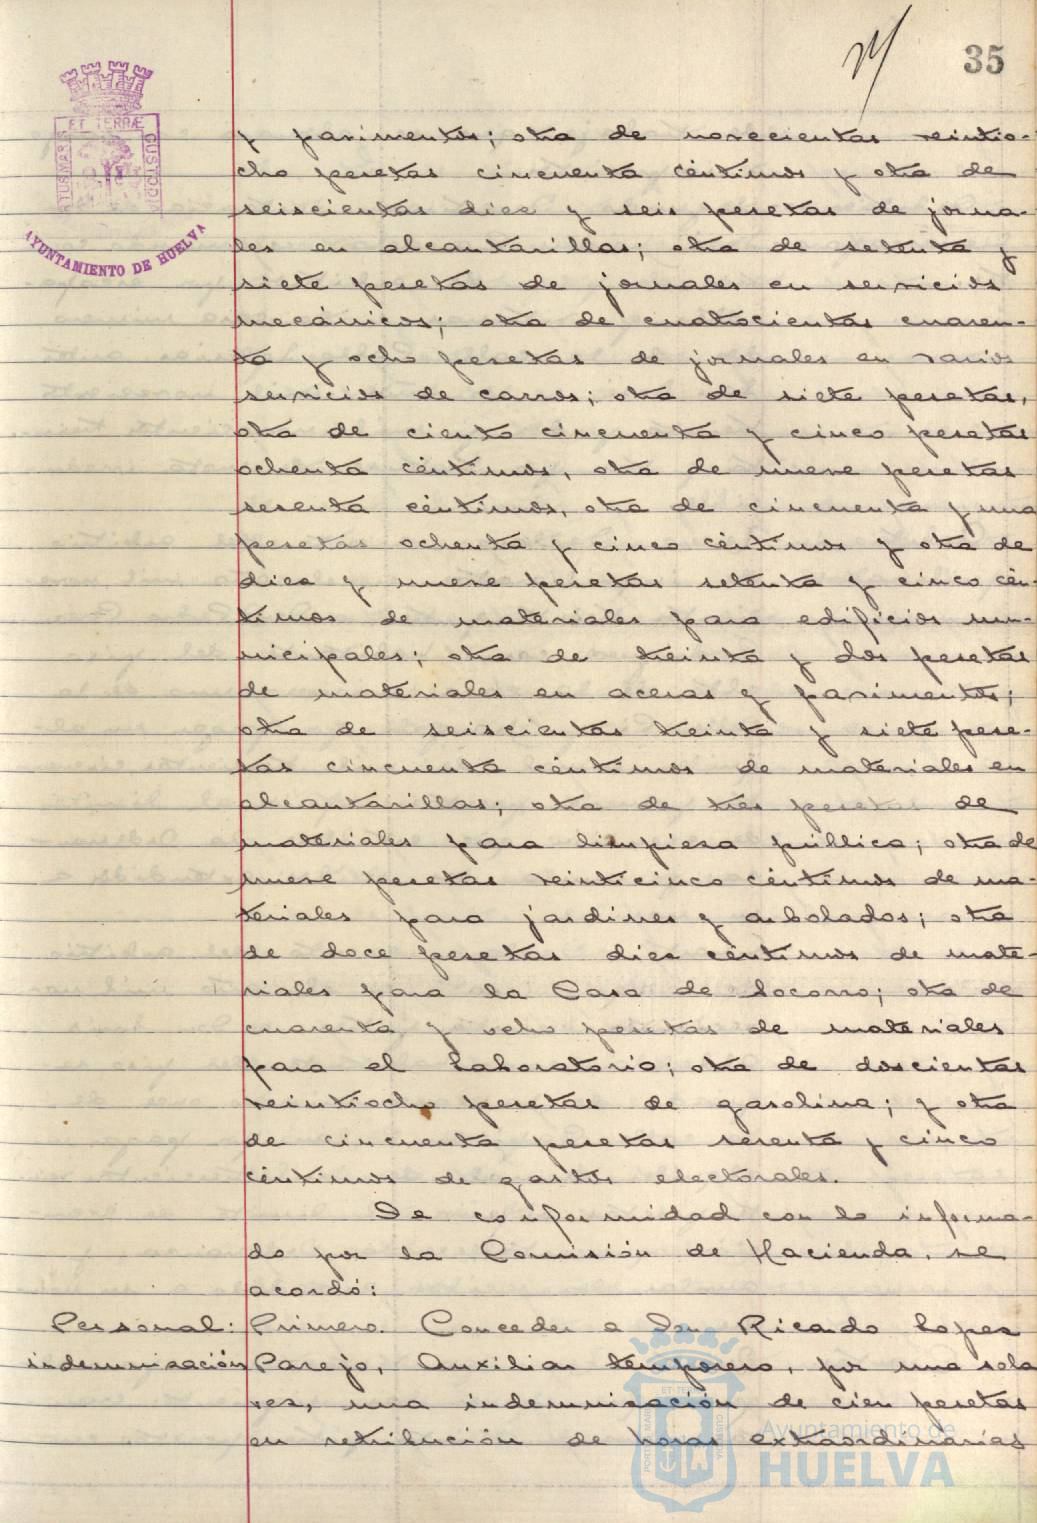 35
ET TERRÆ
CUSTODIA
AYUNTAMIENTO DE HUELVA
y pavimentos; otra de novecientas veintio-
cho pesetas cincuenta céntimos y otra de
seiscientas diez y seis pesetas de jorna-
les en alcantarillas; otra de setenta y
siete pesetas de jornales en servicios
mecánicos; otra de cuatrocientas cuaren-
ta y ocho pesetas de jornales en varios
servicios de carros; otra de siete pesetas,
otra de ciento cincuenta y cinco pesetas
ochenta céntimos, otra de nueve pesetas
sesenta céntimos, otra de cincuenta y una
pesetas ochenta y cinco céntimos y otra de
diez y nueve pesetas setenta y cinco cén-
timos de materiales para edificios mu-
nicipales; otra de treinta y dos pesetas
de materiales en aceras y pavimentos;
otra de seiscientas treinta y siete pese-
tas cincuenta céntimos de materiales en
alcantarillas; otra de tres pesetas de
materiales para limpieza pública; otra de
nueve pesetas veinticinco céntimos de ma-
teriales para jardines y arbolados; otra
de doce pesetas diez céntimos de mate-
riales para la Casa de Socorro; otra de
cuarenta y ocho pesetas de materiales
para el Laboratorio; otra de doscientas
veintiocho pesetas de gasolina; y otra
de cincuenta pesetas sesenta y cinco
céntimos de gastos electorales.
De conformidad con lo informa-
do por la Comisión de Hacienda, se
acordó:
Personal: Primero. Conceder a Don Ricardo Lopez
indemnización Parejo, Auxiliar temporero, por una sola
vez, una indemnización de cien pesetas
en retribución de horas extraordinarias
Ayuntamiento de
HUELVA